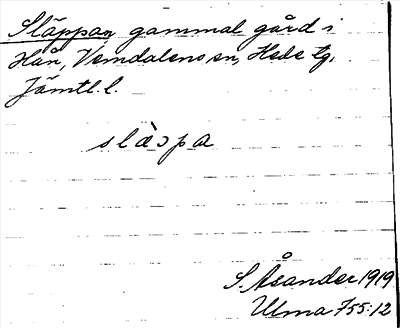 Släppan gammal gård i
Hån, Vemdalens sn, Hede tg.
Jämtl. l.
slàpa
S. Åsander 1919
Ulma 755:12